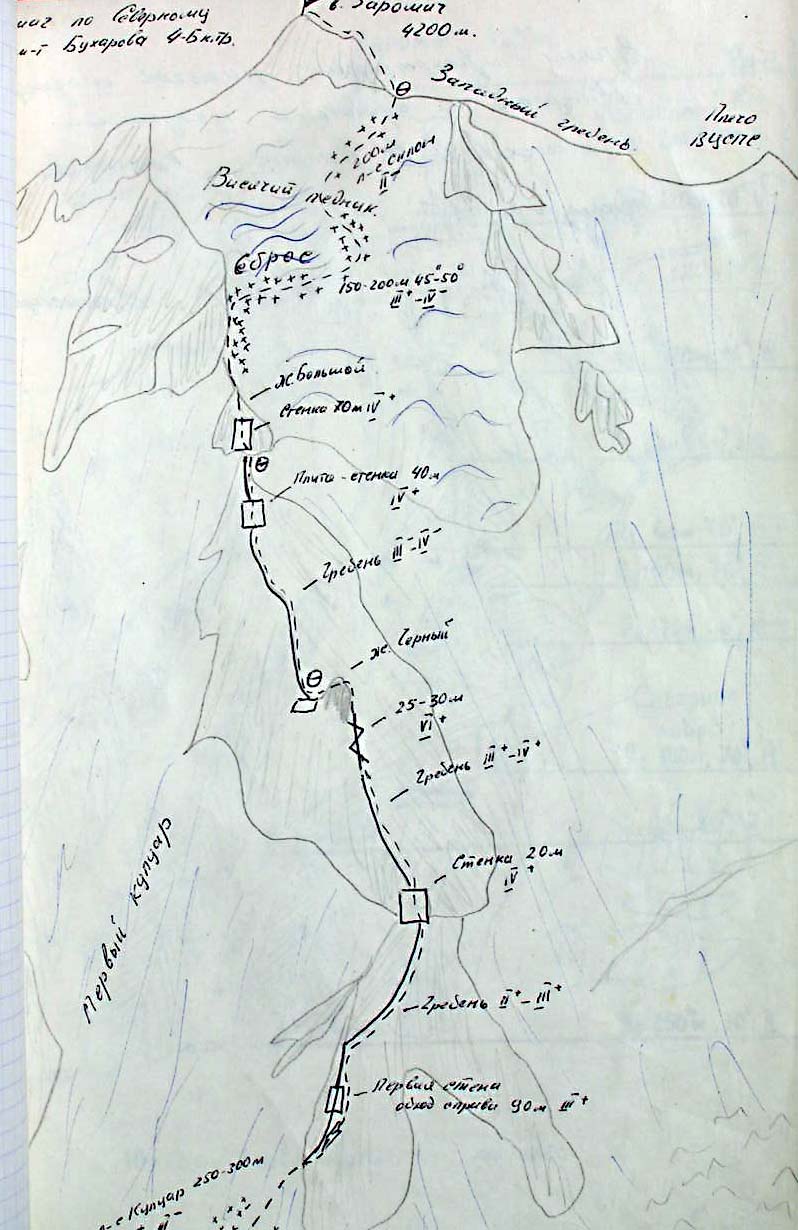 по Северному
Бухарова 4-Б к.тр.
в. Заромаг
4200 м.
Западный гребень
Плечо
ВЦСПС
200м
л-с склон
II+
Висячий ледник.
Сброс
150-200м 45°-50°
III+-IV-
ж. Большой
Стенка 70м IV+
Плита-стенка 40м
IV+
Гребень III-IV-
ж. Черный
25-30м
VI+
Гребень III+-IV+
Стенка 20м
IV+
Первый кулуар
Гребень II+-III+
Первая стена
обход справа 90м III+
л-с Кулуар 250-300м